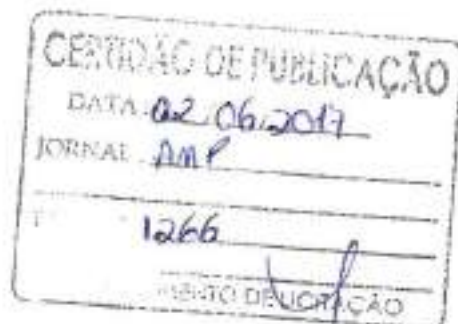 CERTIDÃO DE PUBLICAÇÃO
DATA 02.06.2017
JORNAL AMP
1266
DE LICITAÇÃO